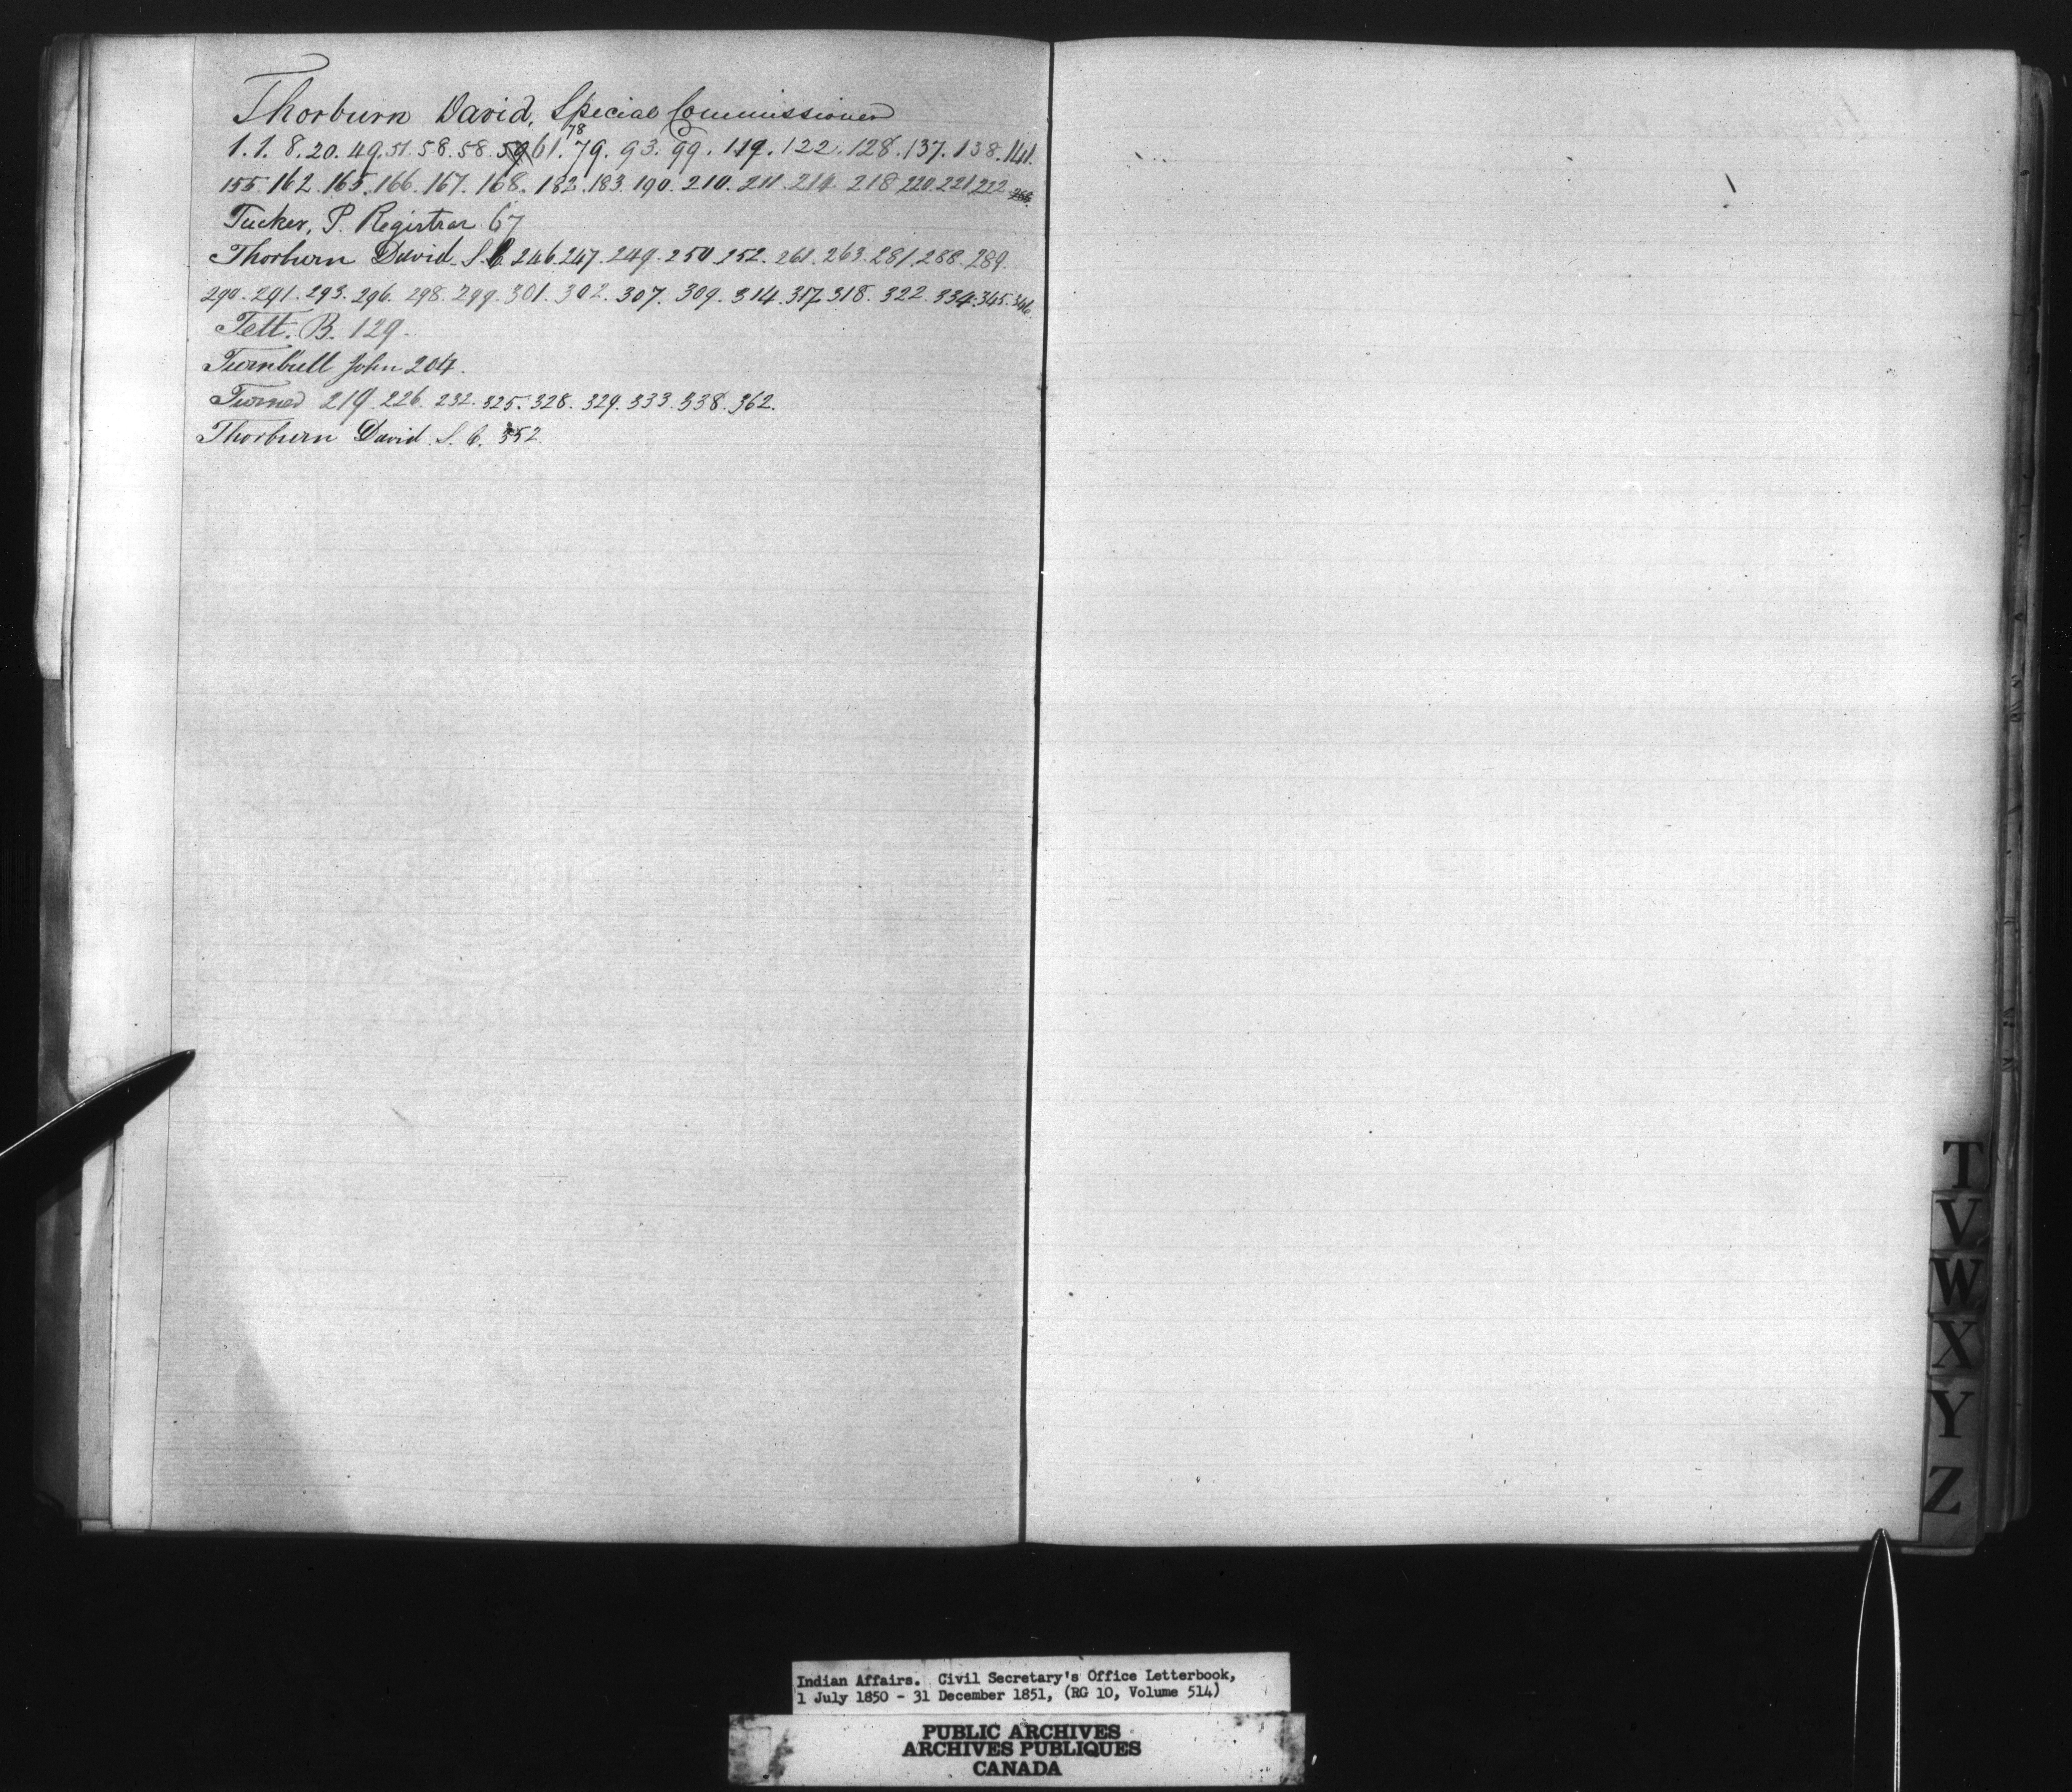 Thorburn David, Special Commissioner
78
1. 1. 8. 20. 49. 51. 58. 58. 59 61. 79. 93. 99. 119. 122. 128. 137. 138. 141.
155. 162. 165. 166. 167. 168. 182. 183. 190. 210. 211. 214 218 220. 221 222
Tucker, P. Registrar 67
Thorburn David S. C. 246. 247. 249. 250. 252. 261. 263. 281. 288. 289.
290. 291. 293. 296. 298. 299. 301. 302. 307. 309. 314. 317 318. 322. 334. 345. 346.
Tett. B. 129.
Turnbull John 204.
Turner 219. 226. 232. 325. 328. 329. 333. 338. 362.
Thorburn David. S. C. 352
T
V
W
X
Y
Z
Indian Affairs. Civil Secretary's Office Letterbook,
1 July 1850 - 31 December 1851, (RG 10, Volume 514)
PUBLIC ARCHIVES
ARCHIVES PUBLIQUES
CANADA